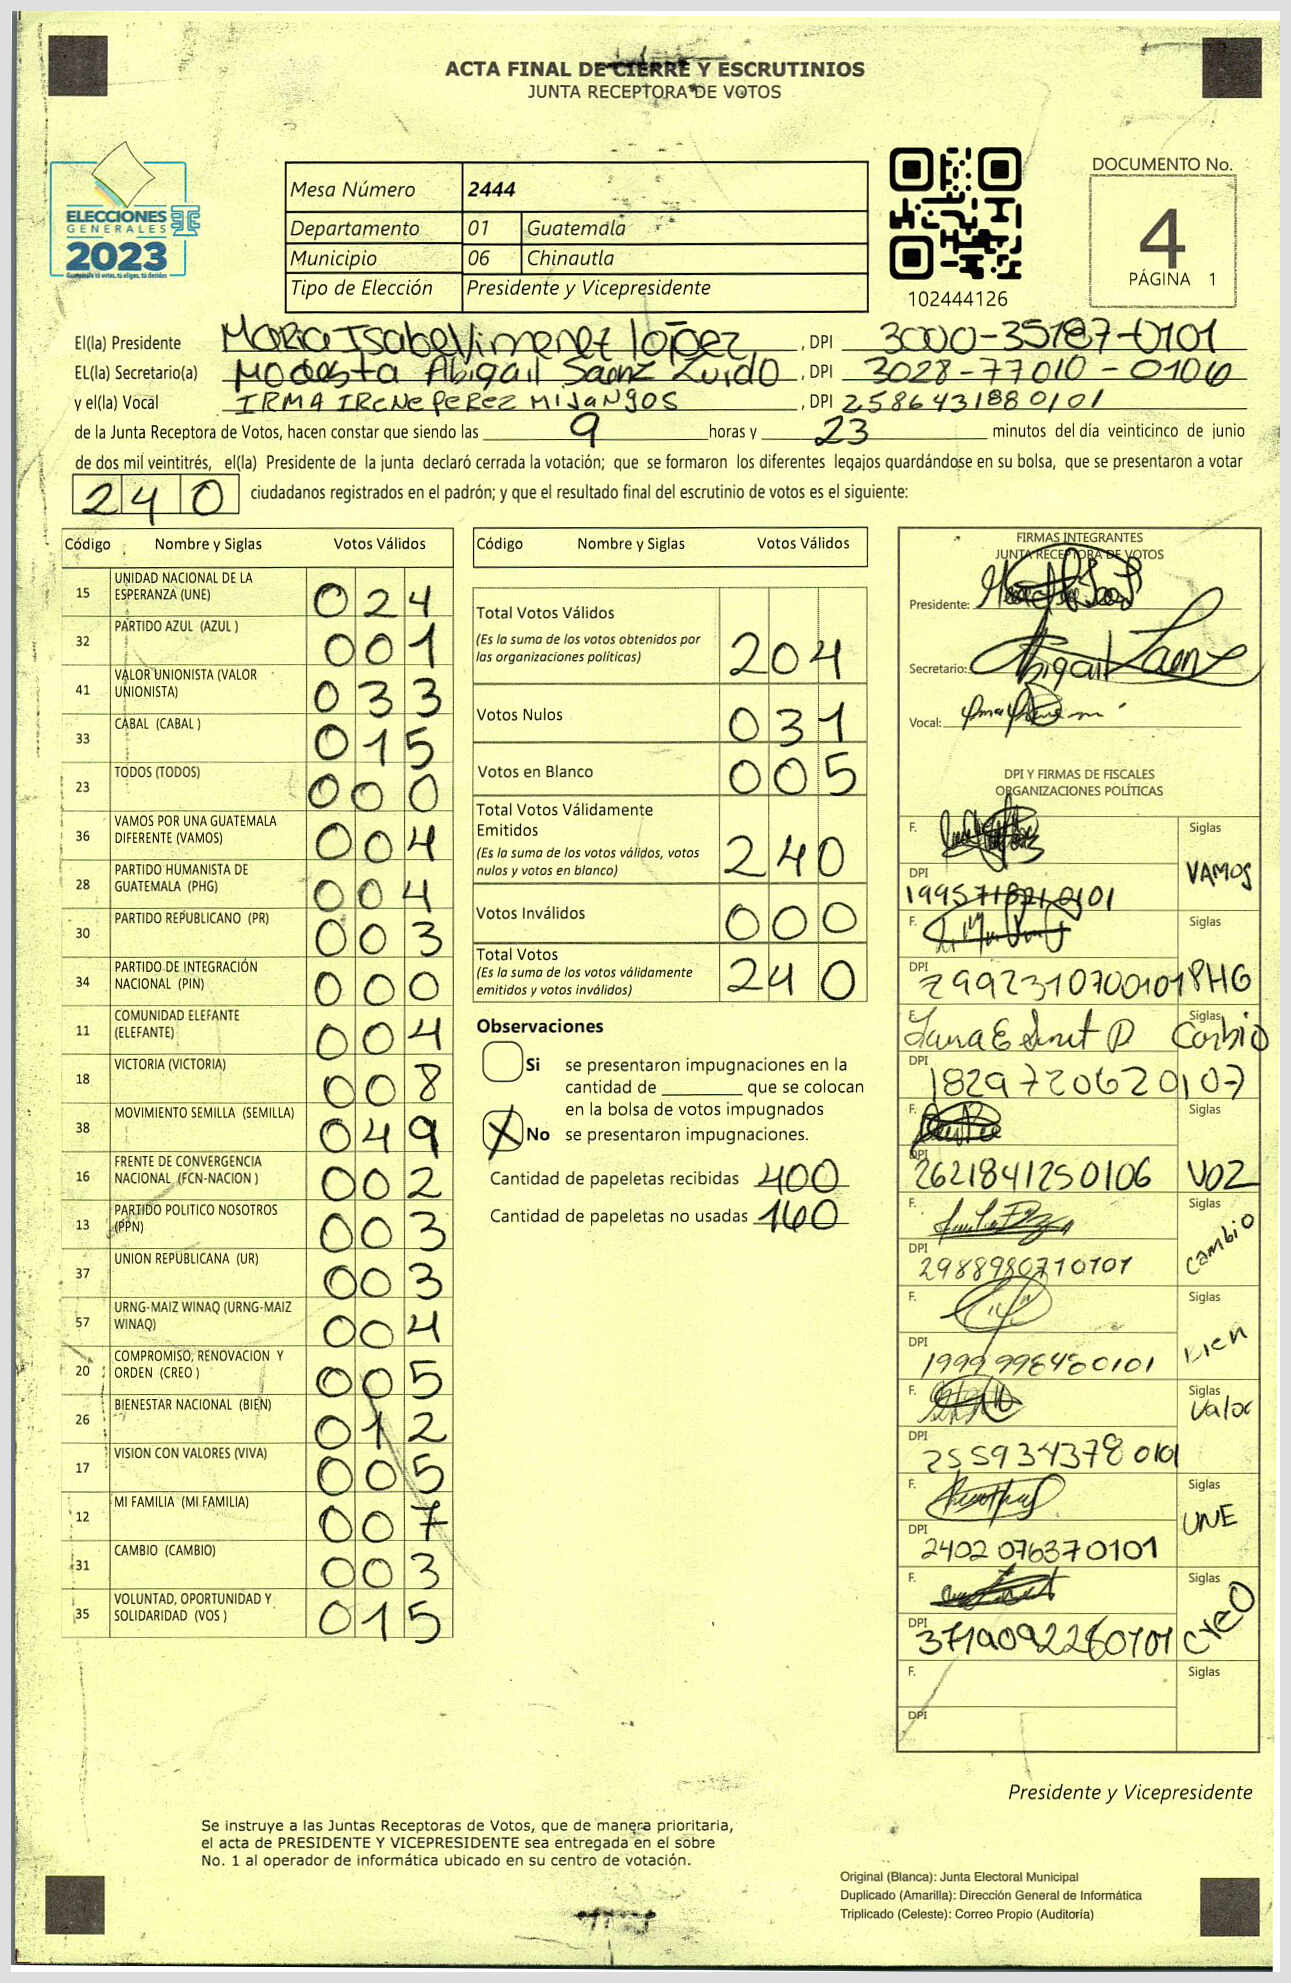 ACTA FINAL DE CIERRE Y ESCRUTINIOS
JUNTA RECEPTORA DE VOTOS
ELECCIONES
GENERALES
2023
Mesa Número 2444
Departamento 01 Guatemala
Municipio 06 Chinautla
Tipo de Elección Presidente y Vicepresidente
102444126
DOCUMENTO No.
4
PÁGINA 1
El(la) Presidente Maria Isabel Jimenez López, DPI 3000-35187-0101
EL(la) Secretario(a) Modesta Abigail Saenz Zurdo, DPI 3028-77010-0106
y el(la) Vocal IRMA IRENE PEREZ MIJANGOS, DPI 2586431880101
de la Junta Receptora de Votos, hacen constar que siendo las 9 horas y 23 minutos del día veinticinco de junio
de dos mil veintitrés, el(la) Presidente de la junta declaró cerrada la votación; que se formaron los diferentes legajos guardándose en su bolsa, que se presentaron a votar
240 ciudadanos registrados en el padrón; y que el resultado final del escrutinio de votos es el siguiente:
Código Nombre y Siglas Votos Válidos
15 UNIDAD NACIONAL DE LA ESPERANZA (UNE) 024
32 PARTIDO AZUL (AZUL ) 001
41 VALOR UNIONISTA (VALOR UNIONISTA) 033
33 CABAL (CABAL ) 015
23 TODOS (TODOS) 000
36 VAMOS POR UNA GUATEMALA DIFERENTE (VAMOS) 004
28 PARTIDO HUMANISTA DE GUATEMALA (PHG) 004
30 PARTIDO REPUBLICANO (PR) 003
34 PARTIDO DE INTEGRACIÓN NACIONAL (PIN) 000
11 COMUNIDAD ELEFANTE (ELEFANTE) 004
18 VICTORIA (VICTORIA) 008
38 MOVIMIENTO SEMILLA (SEMILLA) 049
16 FRENTE DE CONVERGENCIA NACIONAL (FCN-NACION ) 002
13 PARTIDO POLITICO NOSOTROS (PPN) 003
37 UNION REPUBLICANA (UR) 003
57 URNG-MAIZ WINAQ (URNG-MAIZ WINAQ) 004
20 COMPROMISO, RENOVACION Y ORDEN (CREO ) 005
26 BIENESTAR NACIONAL (BIEN) 012
17 VISION CON VALORES (VIVA) 005
12 MI FAMILIA (MI FAMILIA) 007
31 CAMBIO (CAMBIO) 003
35 VOLUNTAD, OPORTUNIDAD Y SOLIDARIDAD (VOS ) 015
Código Nombre y Siglas Votos Válidos
Total Votos Válidos 204
(Es la suma de los votos obtenidos por
las organizaciones politicas)
Votos Nulos 031
Votos en Blanco 005
Total Votos Válidamente
Emitidos 240
(Es la suma de los votos válidos, votos
nulos y votos en blanco)
Votos Inválidos 000
Total Votos 240
(Es la suma de los votos válidamente
emitidos y votos inválidos)
Observaciones
Si se presentaron impugnaciones en la
cantidad de ________ que se colocan
en la bolsa de votos impugnados
X No se presentaron impugnaciones.
Cantidad de papeletas recibidas 400
Cantidad de papeletas no usadas 160
FIRMAS INTEGRANTES
JUNTA RECEPTORA DE VOTOS
Presidente:
Secretario: Abigail Saenz
Vocal:
DPI Y FIRMAS DE FISCALES
ORGANIZACIONES POLÍTICAS
F. Siglas VAMOS
DPI
F. Siglas PHG
DPI 2992310700101
F. Siglas
DPI 1829720620107
F.
DPI 2621841250106 VOZ
F. Siglas Cambio
DPI 2988980710101
F. Siglas bien
DPI 1999998480101
F. Siglas Valor
DPI 2559343780101
F. Siglas UNE
DPI 2402076370101
F. Siglas CREO
DPI 3719092280101
F. Siglas
DPI
Presidente y Vicepresidente
Se instruye a las Juntas Receptoras de Votos, que de manera prioritaria,
el acta de PRESIDENTE Y VICEPRESIDENTE sea entregada en el sobre
No. 1 al operador de informática ubicado en su centro de votación.
Original (Blanca): Junta Electoral Municipal
Duplicado (Amarilla): Dirección General de Informática
Triplicado (Celeste): Correo Propio (Auditoría)